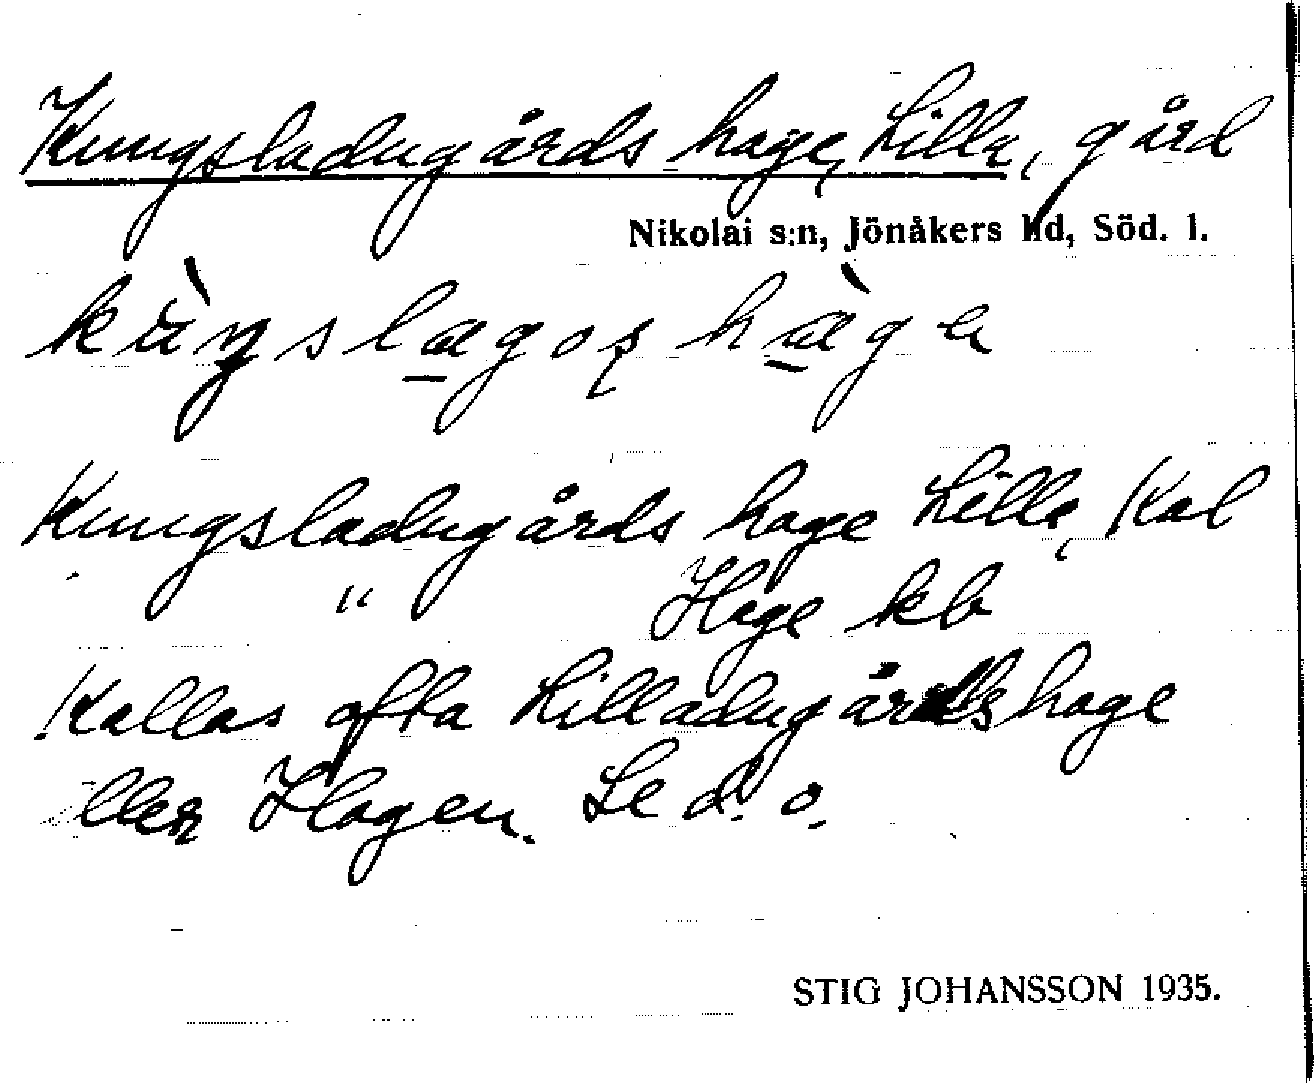 Kungsladugårds hage, Lilla, gård
Nikolai s:n, Jönåkers hd, Söd. l.
kùŋslagoʂ hàga
Kungsladugårds hage Lilla, Kal
" Hage kb
Kallas ofta Lilladugårdshage
eller Hagen. Se d. o.
STIG JOHANSSON 1935.